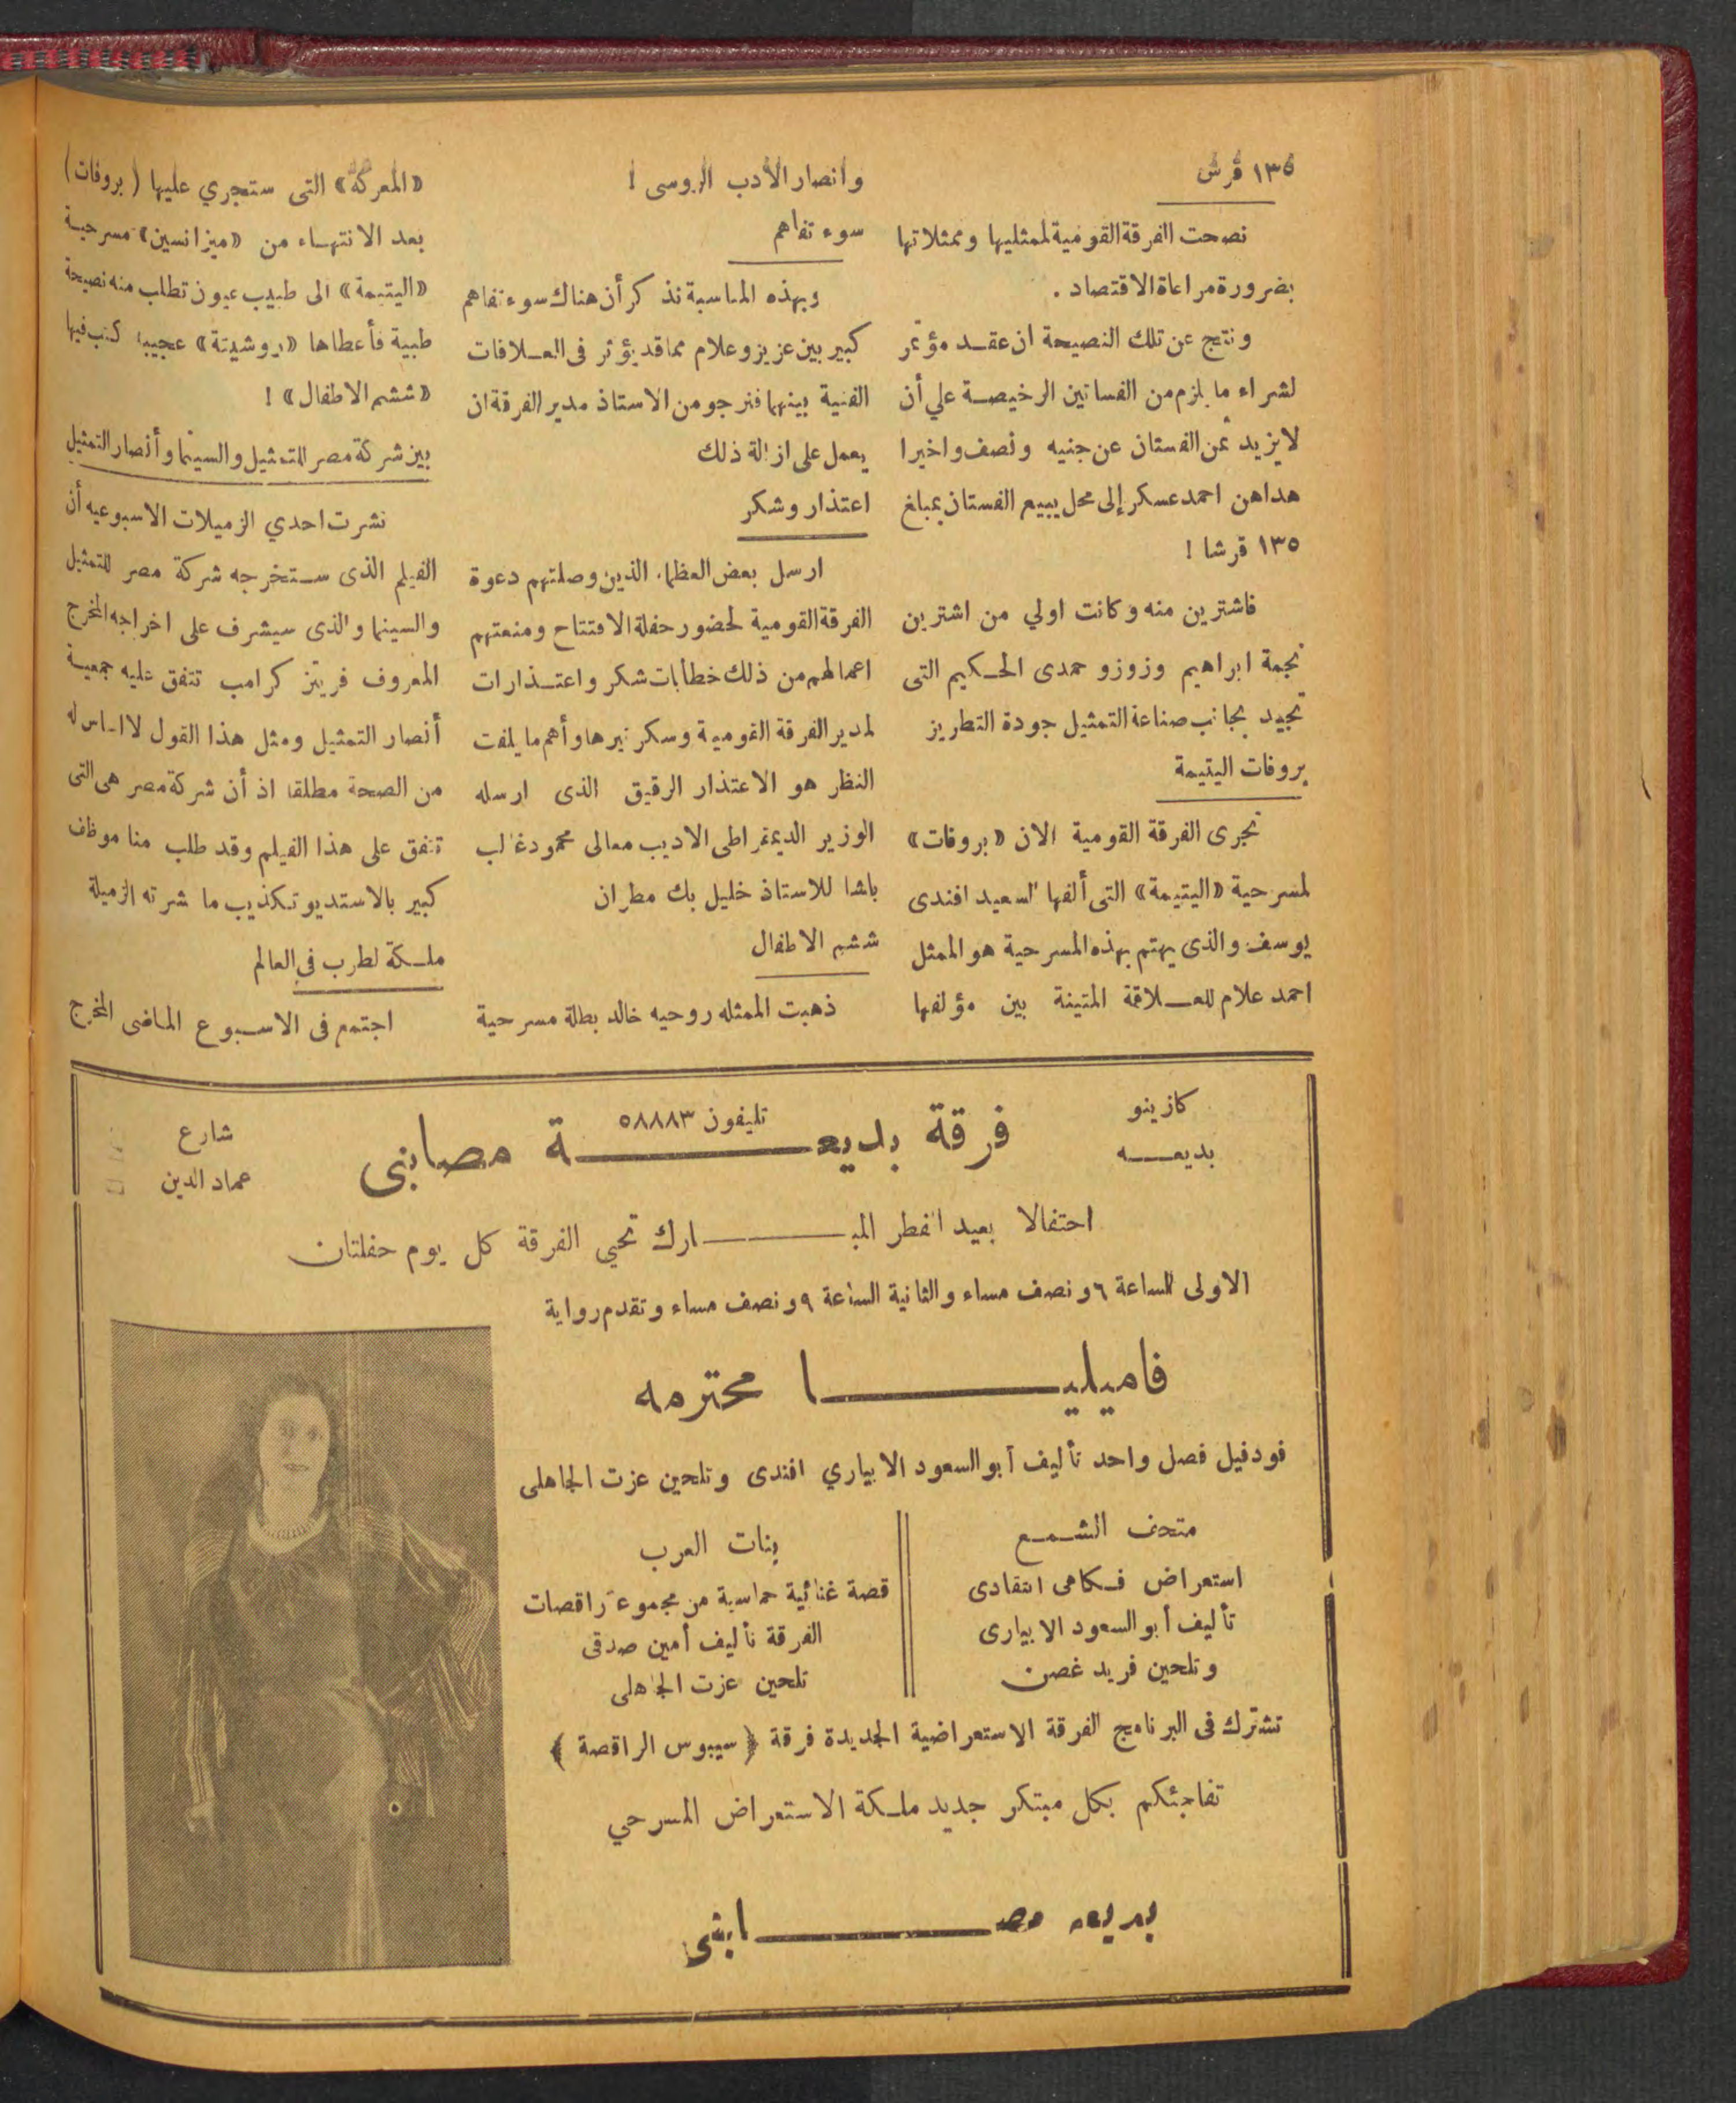 ١٣٥ قرش
نصحت الفرقة القومية لممثليها وممثلاتها
بضرورة مراعاة الاقتصاد .
ونتج عن تلك النصيحة ان عقد مؤتمر
لشراء ما يلزم من الفساتين الرخيصة علي أن
لا يزيد ثمن الفستان عن جنيه ونصف واخيرا
هداهن احمد عسكر إلى محل يبيع الفستان بمبلغ
١٣٥ قرشا !
فاشترين منه وكانت اولي من اشترين
نجمة ابراهيم وزوزو حمدى الحكيم التى
تجيد بجانب صناعة التمثيل جودة التطريز
بروفات اليتيمة
تجرى الفرقة القومية الان «بروفات»
لمسرحية «اليتيمة» التى ألفها السعيد افندى
يوسف والذى يهتم بهذه المسرحية هو الممثل
احمد علام للعلاقة المتينة بين مؤلفها
وأنصار الأدب الروسى !
سوء تفاهم
وبهذه المناسبة نذكر أن هناك سوء تفاهم
كبير بين عزيز وعلام مما قد يؤثر فى العلاقات
الفنية بينهما فنرجو من الاستاذ مدير الفرقة ان
يعمل على ازالة ذلك
اعتذار وشكر
ارسل بعض العظماء الذين وصلتهم دعوة
الفرقة القومية لحضور حفلة الافتتاح ومنعتهم
اعمالهم من ذلك خطابات شكر واعتذارات
لمدير الفرقة القومية وسكرتيرها وأهم ما يلفت
النظر هو الاعتذار الرقيق الذى ارسله
الوزير الديمقراطى الاديب معالى محمود غالب
باشا للاستاذ خليل بك مطران
ششم الاطفال
ذهبت الممثله روحيه خالد بطلة مسرحية
«المعركة» التى ستجري عليها (بروفات)
بعد الانتهاء من «ميزانسين» مسرحية
«اليتيمة» الى طبيب عيون تطلب منه نصيحة
طبية فأعطاها «روشيتة» عجيبة كتب فيها
«ششم الاطفال» !
بين شركة مصر للتمثيل والسينما وأنصار التمثيل
نشرت احدي الزميلات الاسبوعيه أن
الفيلم الذى ستخرجه شركة مصر للتمثيل
والسينما والذى سيشرف على اخراجه المخرج
المعروف فريتز كرامب تتفق عليه جمعية
أنصار التمثيل ومثل هذا القول لا اساس له
من الصحة مطلقا اذ أن شركة مصر هى التى
تنفق على هذا الفيلم وقد طلب منا موظف
كبير بالاستديو تكذيب ما نشرته الزميلة
ملكة لطرب في العالم
اجتمع فى الاسبوع الماضى المخرج
كازينو
بديعه
تليفون ٥٨٨٨٣
فرقة بديعة مصابنى
شارع
عماد الدين
احتفالا بعيد الفطر المبارك تحيى الفرقة كل يوم حفلتان
الاولى الساعة ٦ ونصف مساء والثانية الساعة ٩ ونصف مساء وتقدم رواية
فاميليا محترمه
فودفيل فصل واحد تأليف أبو السعود الابياري افندى وتلحين عزت الجاهلى
متحف الشمع
استعراض فكاهى انتقادى
تأليف أبو السعود الابيارى
وتلحين فريد غصن
بنات العرب
قصة غنائية حماسية من مجموعة راقصات
الفرقة تأليف أمين صدقى
تلحين عزت الجاهلى
تشترك فى البرنامج الفرقة الاستعراضية الجديدة فرقة ﴿ سيبوس الراقصة ﴾
تفاجئكم بكل مبتكر جديد ملكة الاستعراض المسرحي
بديعه مصابنى